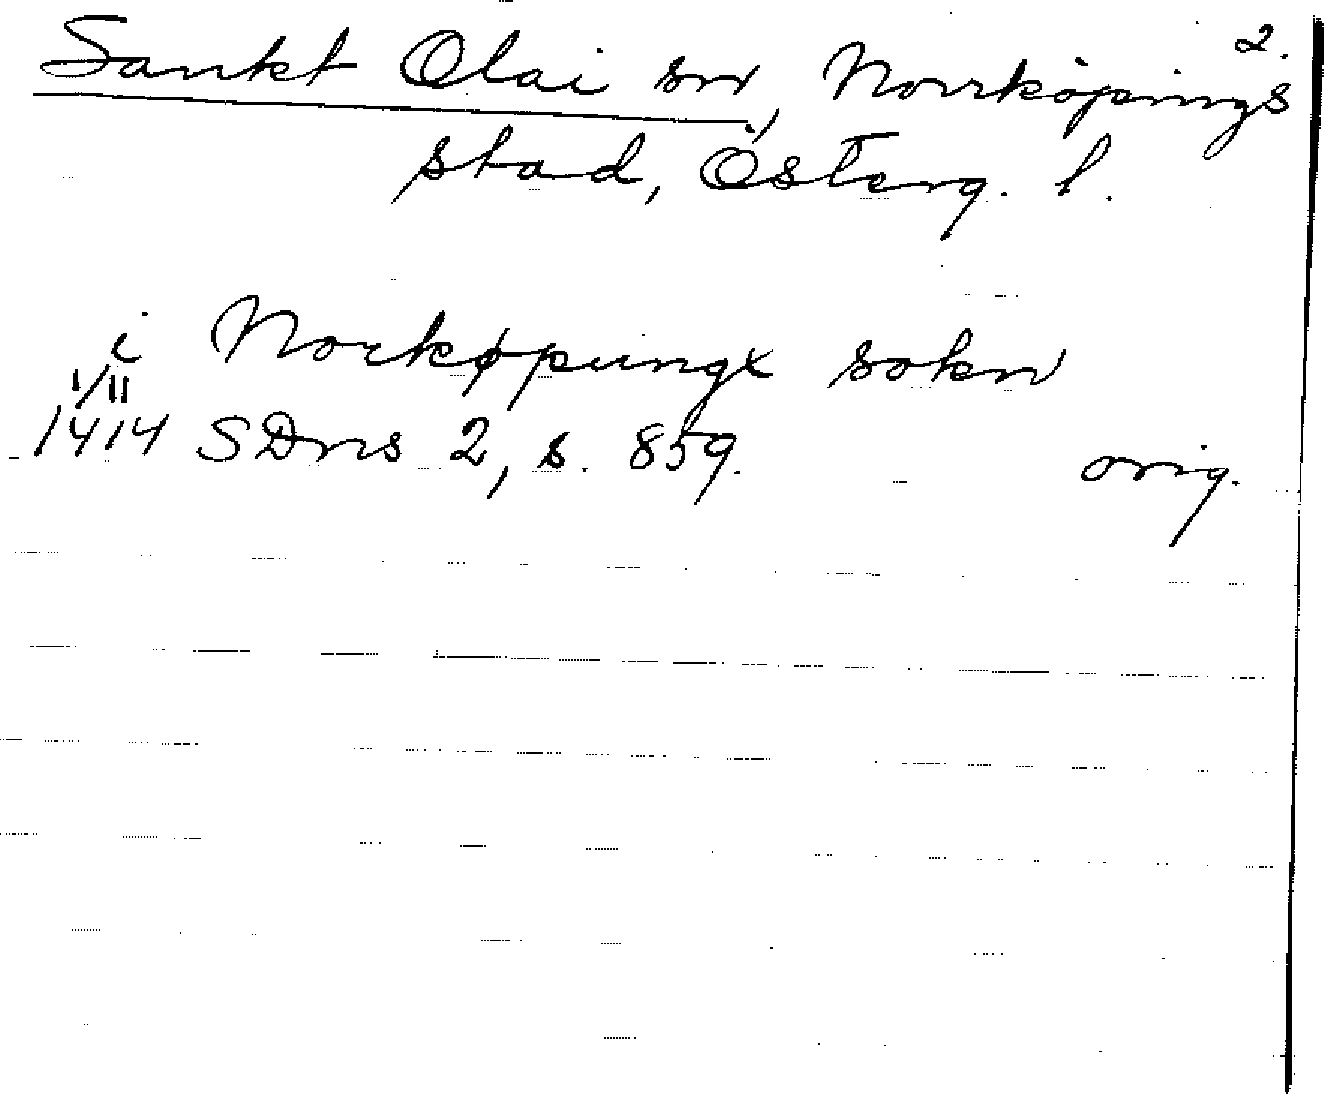 2.
Sankt Olai sn, Norrköpings
stad, Österg. l.
i Norkøpungx sokn
1/11
1414 SDns 2, s. 859. orig.